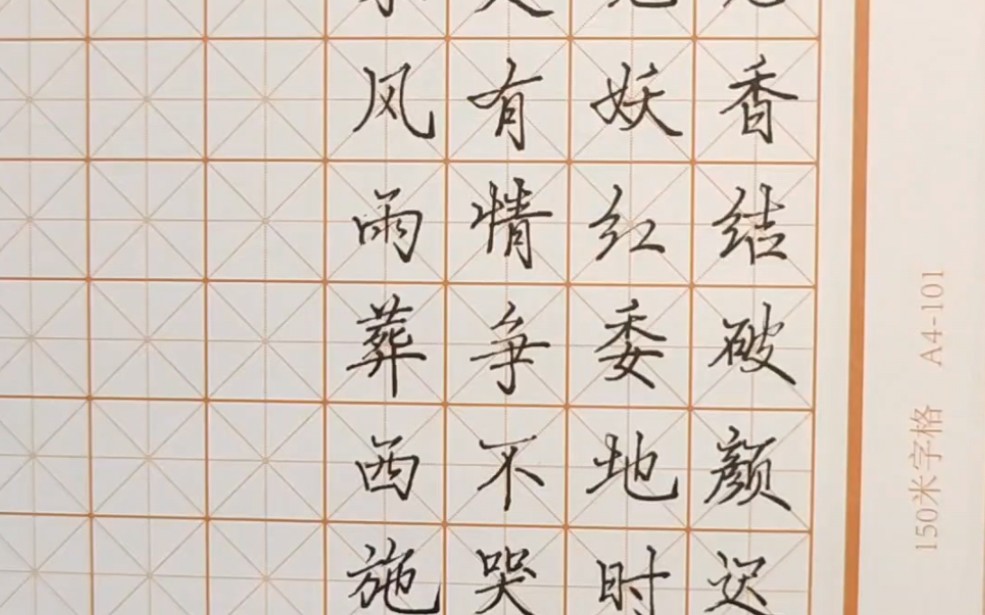 香结破颜迟
妖红委地时
有情争不哭
风雨葬西施
150米字格 A4-101